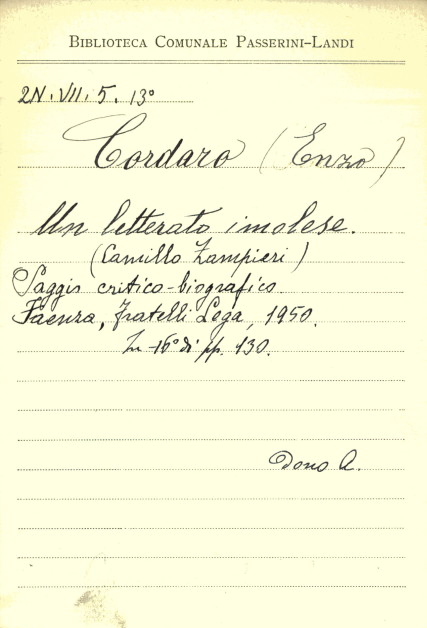 BIBLIOTECA COMUNALE PASSERINI-LANDI
2N. VII. 5. 13°
Cordaro (Enzo)
Un letterato imolese.
(Camillo Zampieri)
Saggio critico-biografico.
Faenza, Fratelli Lega, 1950.
In-16° di pp. 130.
Dono A.